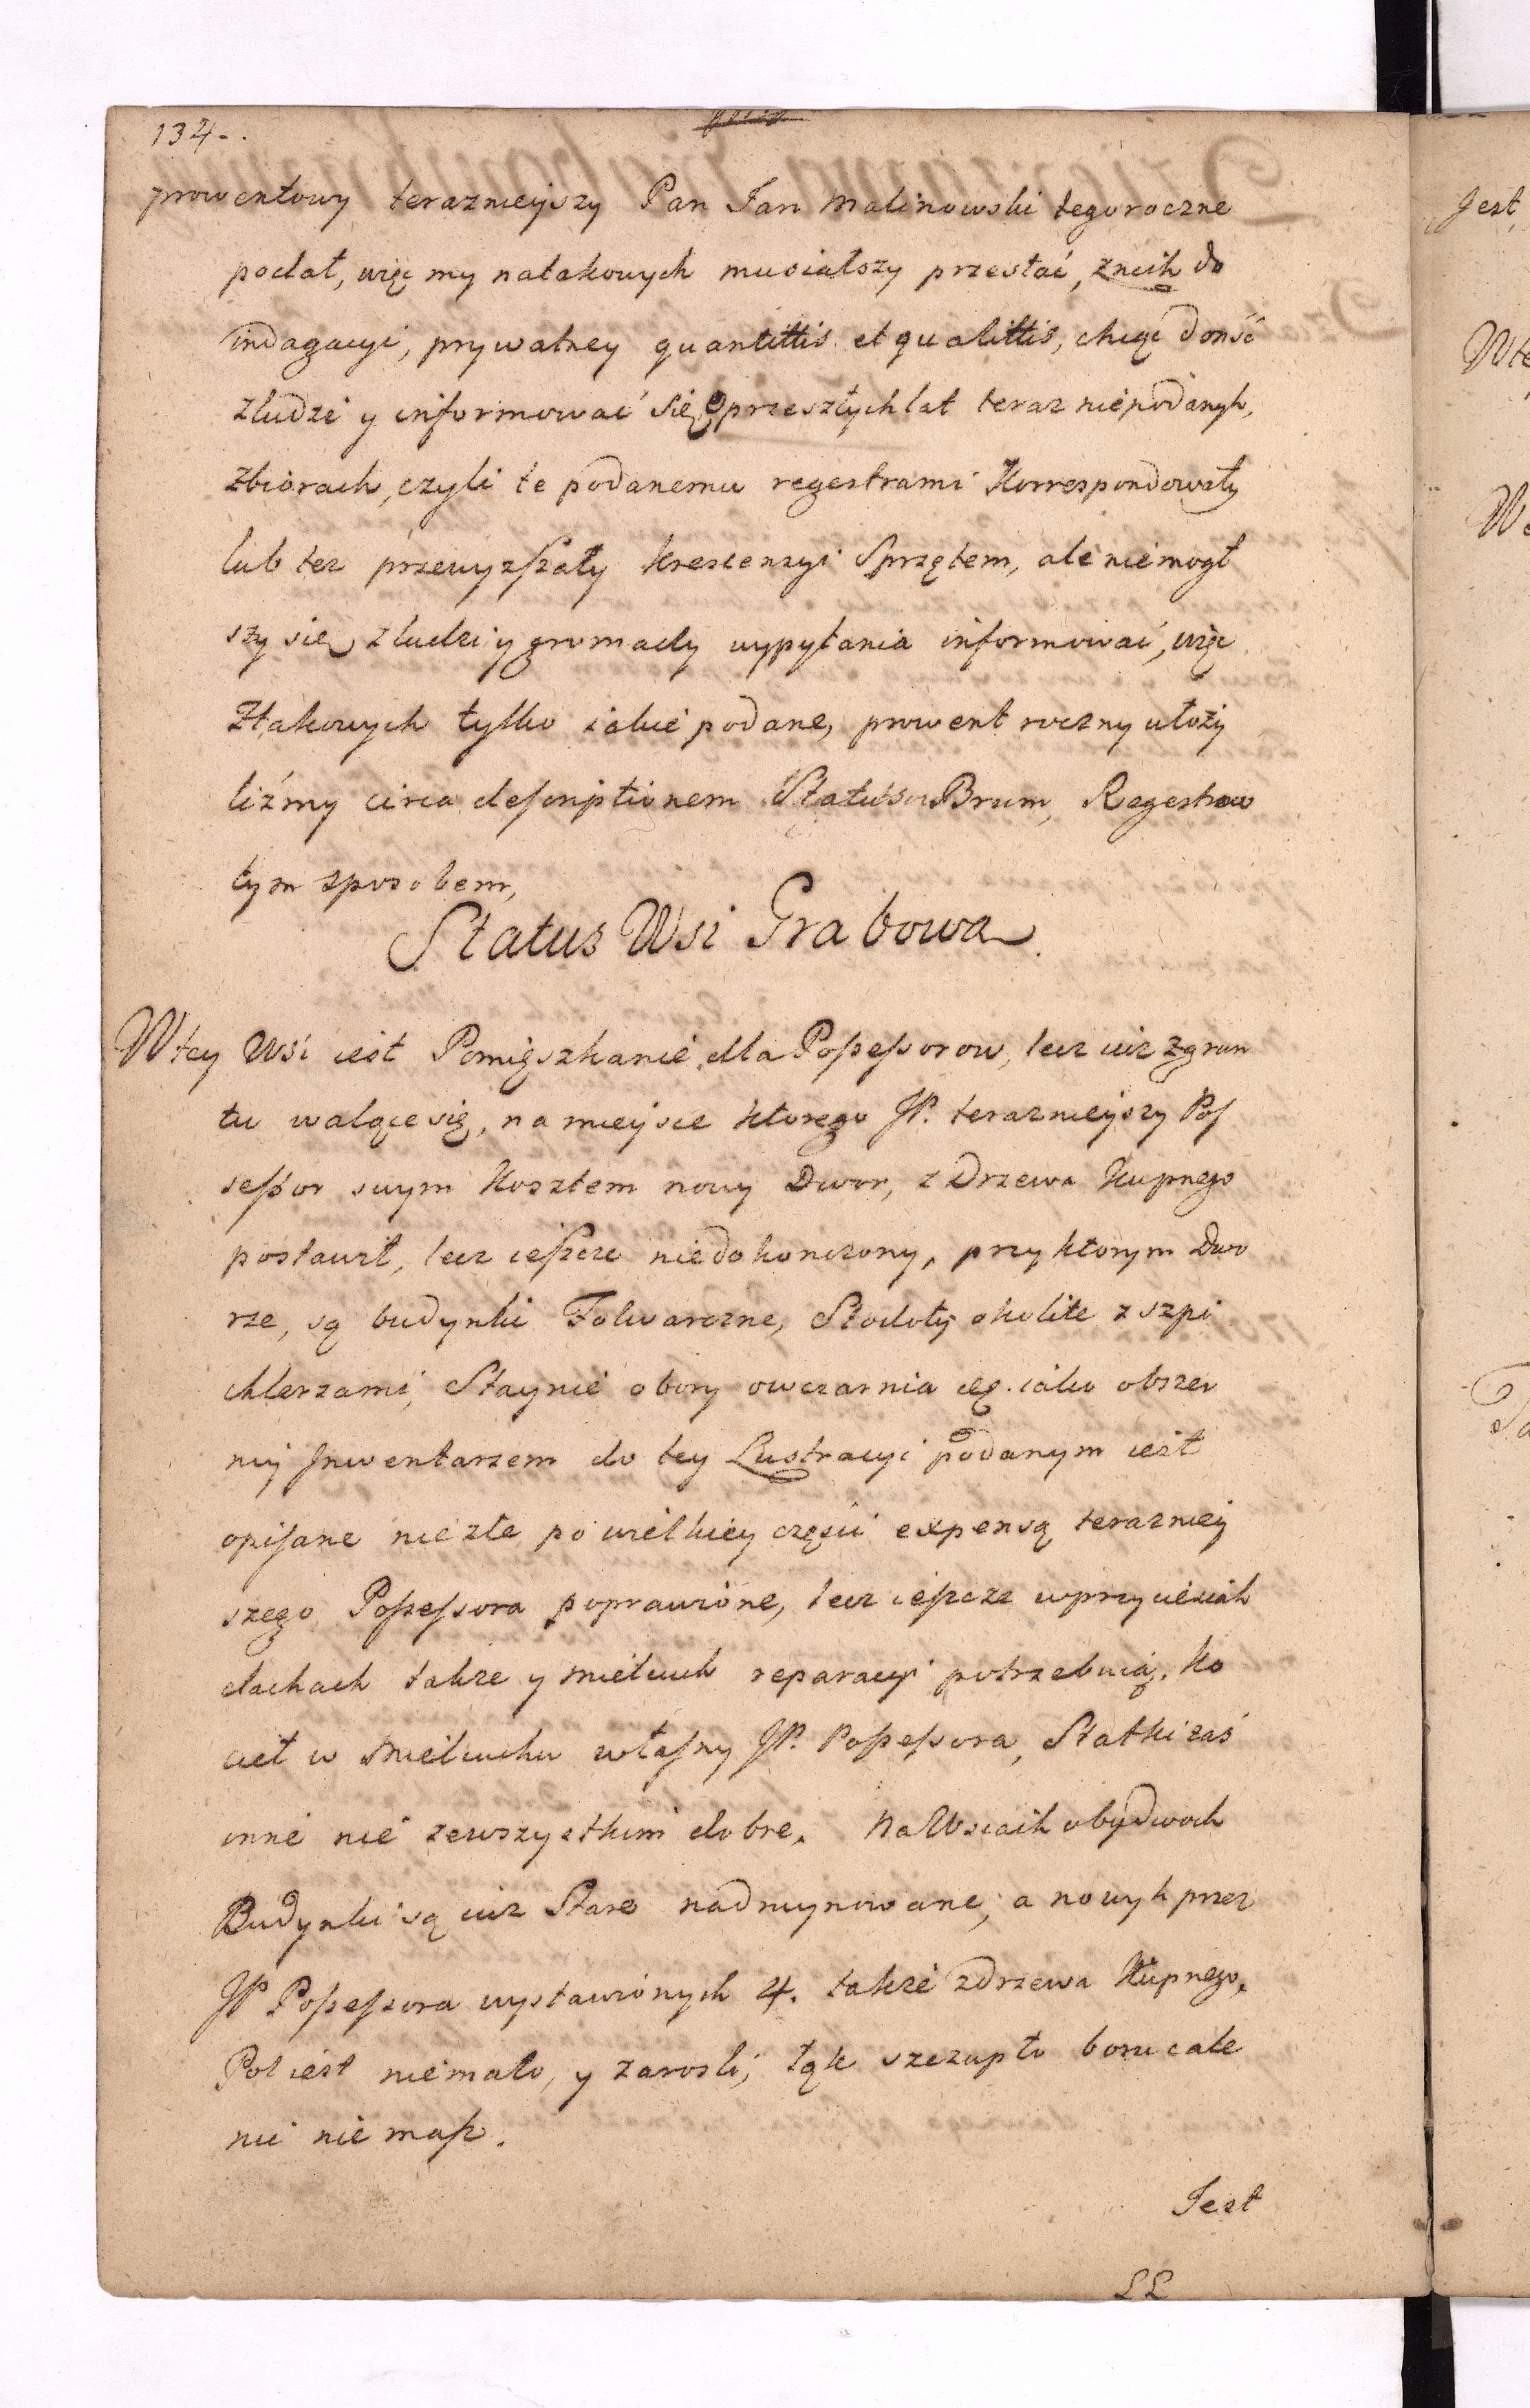 134.
prowentowy terazniejszy Pan Jan Malinowski tegoroczne
podał, więc my natakowych musiałszy przestać, znich do
indagacyi, prywatney quantittis et qualittis, chcąc donść
zludzi y informować się o przeszłych lat teraz niepodanych,
zbiorach, czyli te podanemu regestrami Korrespondowały
lub tez przewyzszały krescencyi Sprzętem, ale niemogł
szy się z ludzi y gromady wypytania informować, więc
Ztakowych tylko iakie podane, prowent roczny ułozy
liźmy circa descriptionem Statusow Brum, Regestrow
tym sposobem,
Status Wsi Grabowa.
Wtey Wsi iest Pomięszkanie dla Possessorow, lecz iuz zgrun
tu walące się, na mieysce ktorego JP. terazniejszy Pos
sessor swym Kosztem nowy Dwor, z Drzewa Kupnego
postawił, lecz ieszcze niedokonczony, przy ktorym Dwo
rze, są budynki Folwarczne, Stodoły okolite z szpi
chlerzami, Staynie obory owczarnia etc. iako obszer
niy Inwentarzem do tey Lustracyi podanym iest
opisane niezłe po wielkiey częsci expensą terazniey
szego Possessora poprawione, lecz ieszcze wprzyciesiach
dachach takze y mielcuch reparacyi potrzebuią. Ko
cieł w mielcuchu własny JP. Possessora, Statki zaś
inne nie zewszystkim dobre. Na Wsiach obydwoch
Budynki są iuz Stare nadruynowane, a nowych przez
JP Possessora wystawionych 4. takze zdrzewa Kupnego,
Pol iest niemało, y zarosli, łąk szczupło boru cale
nie niemasz.
Jest
LL